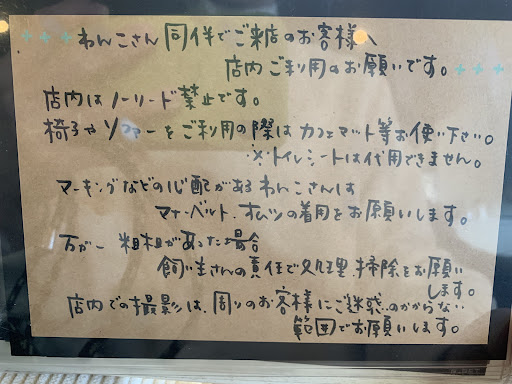 わんこさん同伴でご来店のお客様へ
店内ご利用のお願いです。
店内はノーリード禁止です。
椅子やソファーをご利用の際はカフェマット等お使い下さい。
※トイレシートは代用できません。
マーキングなどの心配があるわんこさんは
マナーベルト、オムツの着用をお願いします。
万が一 粗相があった場合
飼い主さんの責任で処理、掃除をお願い
します。
店内での撮影は、周りのお客様にご迷惑のかからない
範囲でお願いします。